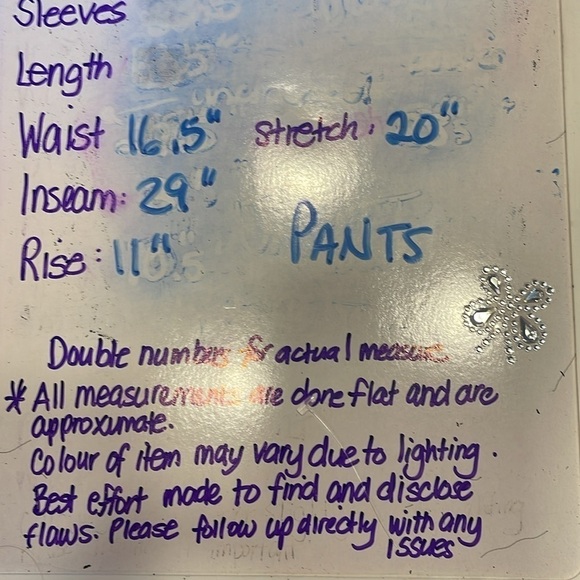 Sleeves
Length
Waist 16.5" stretch: 20"
Inseam: 29"
Rise: 11"
PANTS
Double numbers for actual measure
* All measurements are done flat and are
approximate.
Colour of item may vary due to lighting.
Best effort made to find and disclose
flaws. Please follow up directly with any
issues